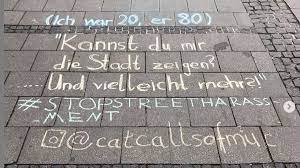 (Ich war 20, er 80)
"Kannst du mir
die Stadt zeigen?
...Und vielleicht mehr?!"
#STOPSTREETHARASS-
MENT
@catcallsofmuc